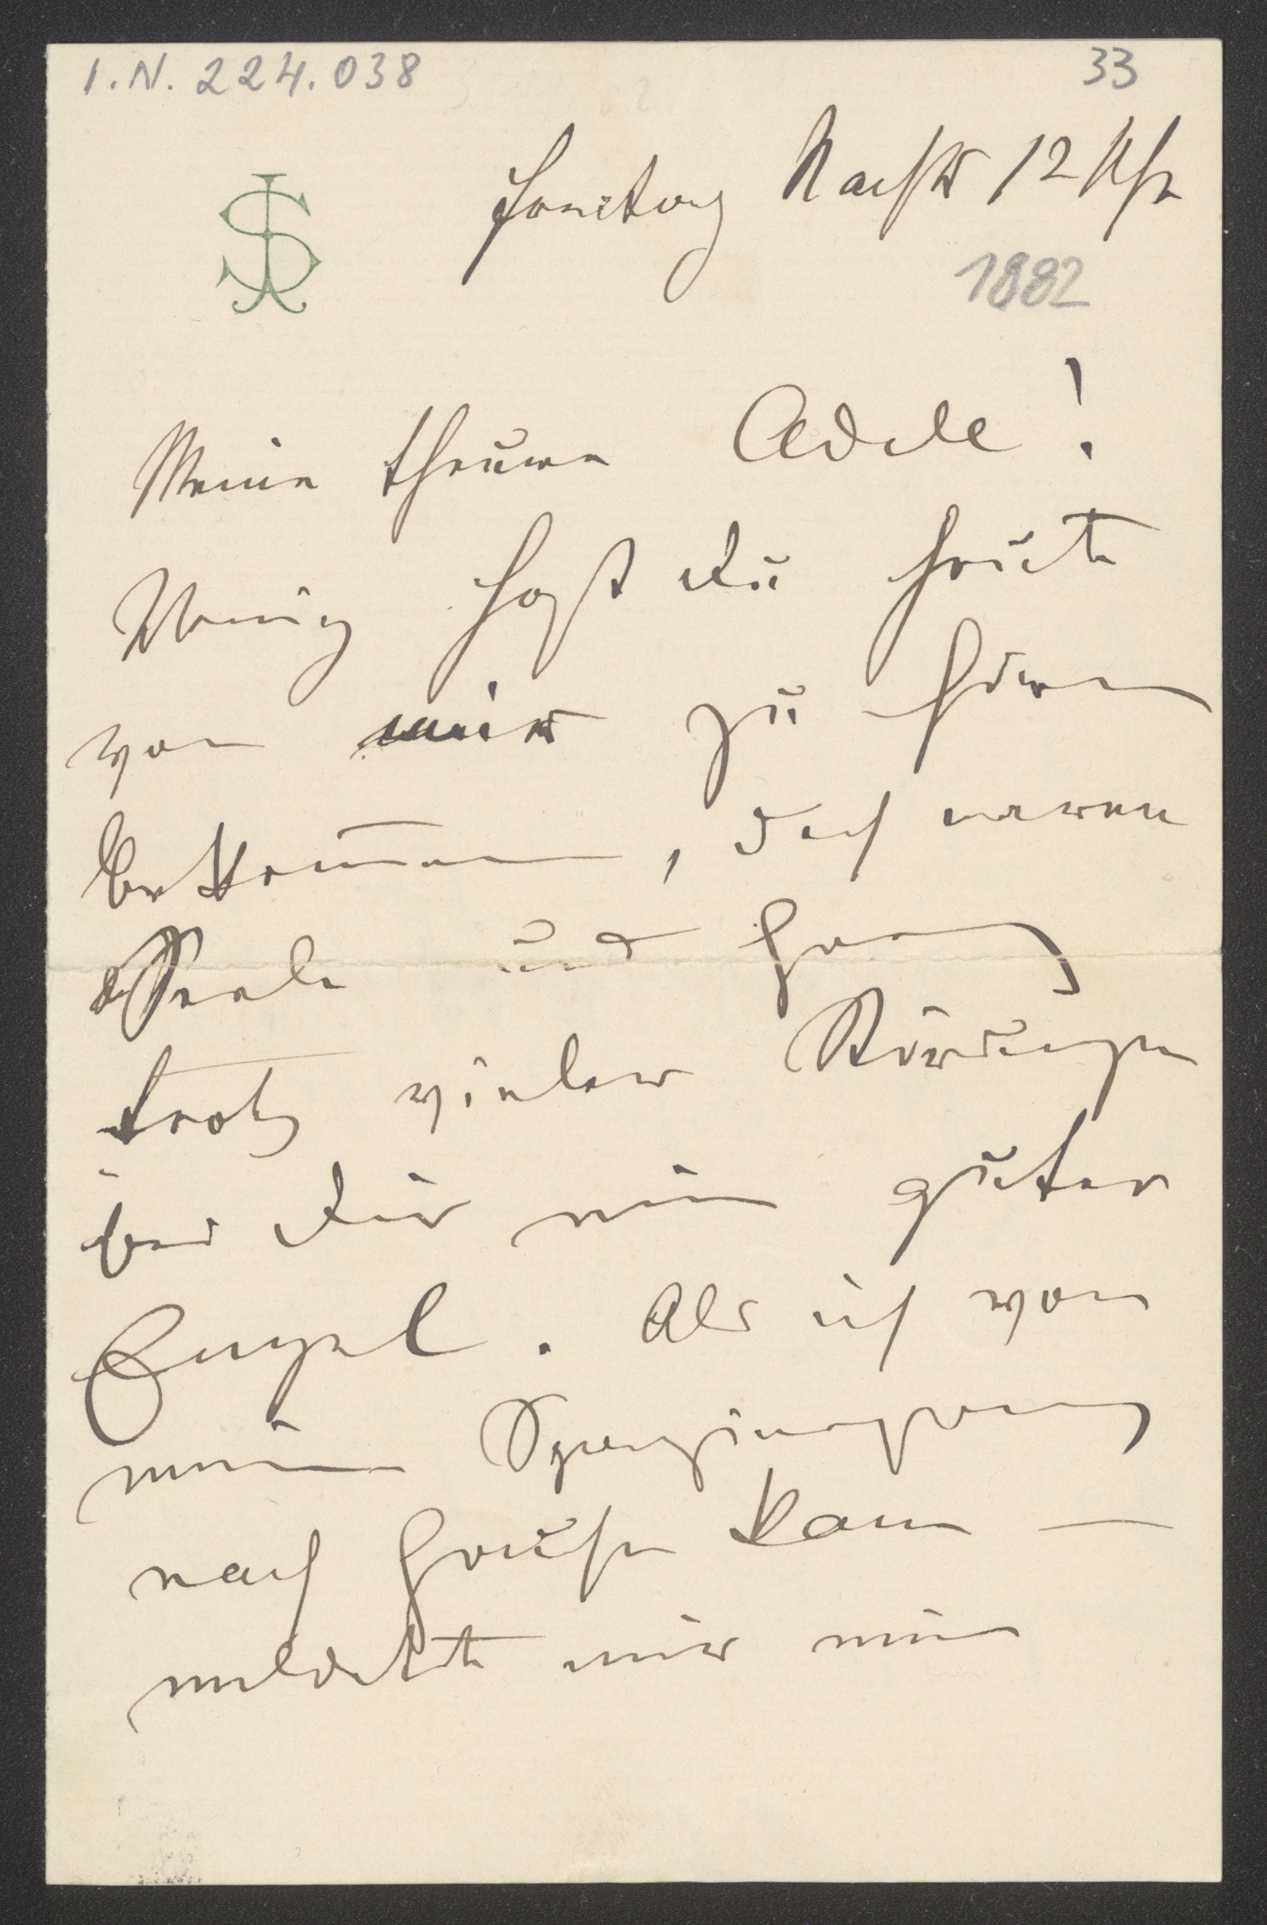 I.N. 224.038
33
JS
Sonntag Nachts 12 Uhr
1882
Meine theure Adele!
Wenig hast Du heute
von mir zu hören
bekommen, doch waren
Seele und Herz
trotz vieler Störungen
bei Dir mein guter
Engel. Als ich von
meinem Spaziergang
nach Hause kam —
meldete mir mein